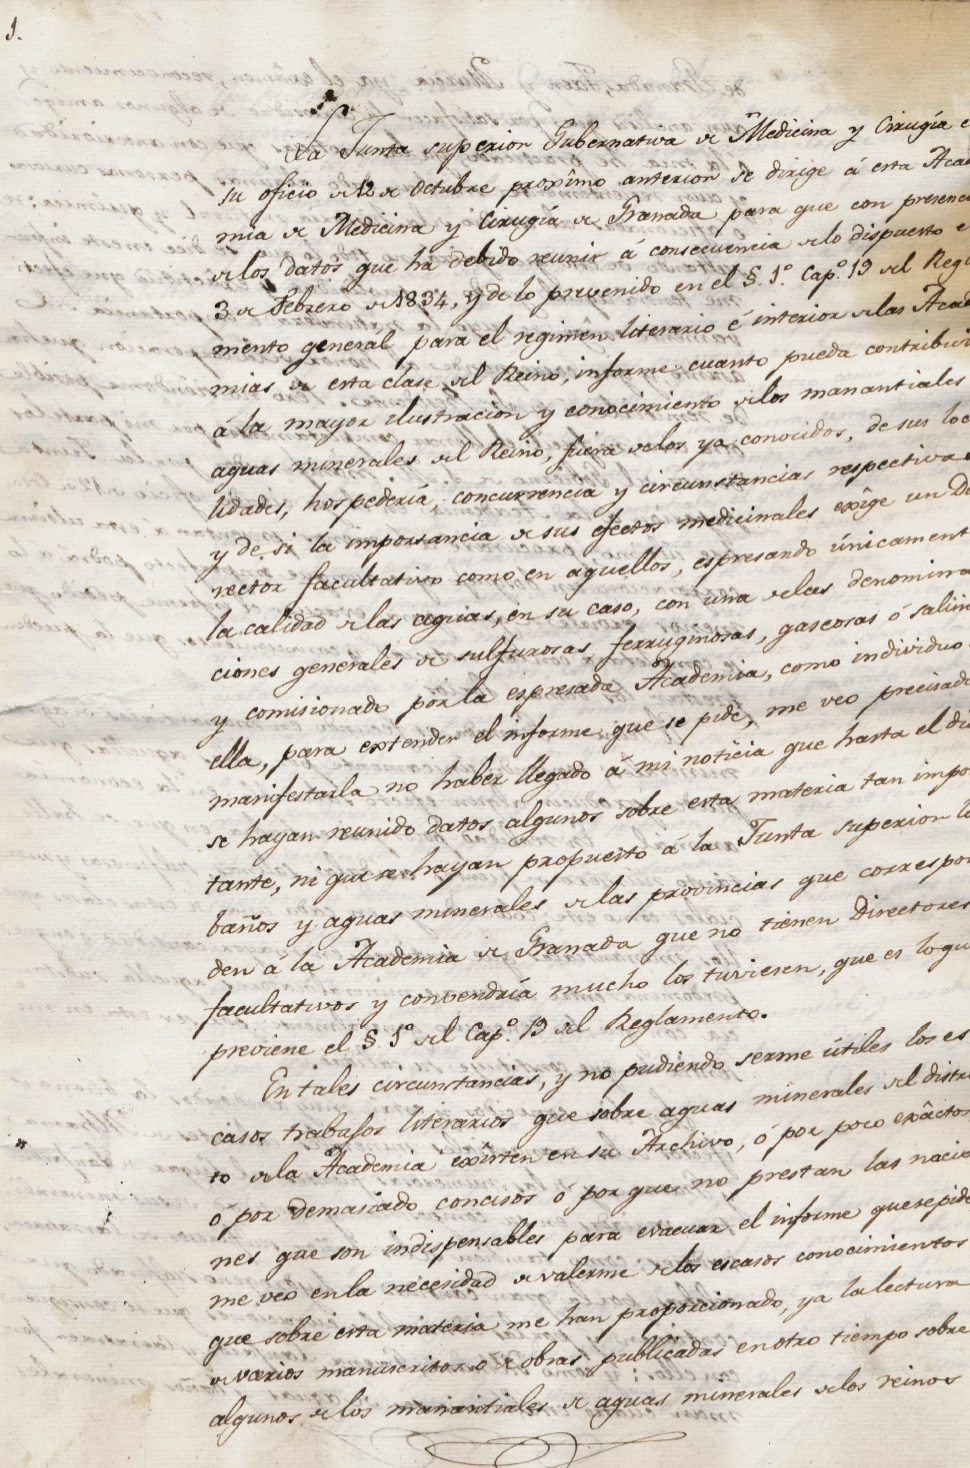 1.
La Junta superior Gubernativa de Medicina y Cirugía e
su oficio de 12 de Octubre proxîmo anterior se dirige á esta Acad
mia de Medicina y Cirugía de Granada para que con presenci
de los datos que ha debido reunir á consecuencia de lo dispuesto e
3 de Febrero de 1834, y de lo prevenido en el §. 1º Cap.º 19 del Regla
mento general para el regimen literario é interior de las Acad
mias de esta clase del Reino, informe cuanto pueda contribuir
á la mayor ilustracion y conocimiento de los manantiales
aguas minerales del Reino, fuera de los ya conocidos, de sus loc
lidades, hospedería, concurrencia y circunstancias respectivas
y de si la importancia de sus efectos medicinales exîge un Di
rector facultativo como en aquellos, espresando únicament
la calidad de las aguas, en su caso, con una de las denomina
ciones generales de sulfurosas, ferruginosas, gaseosas ó salin
y comisionado por la espresada Academia, como individuo
ella, para extender el informe que se pide, me veo precisado
manifestarla no haber llegado á mi noticia que hasta el dia
se hayan reunido datos algunos sobre esta materia tan impor
tante, ni que se hayan propuesto á la Junta superior lo
baños y aguas minerales de las provincias que correspon
den á la Academia de Granada que no tienen Directores
facultativos y convendría mucho los tuviesen, que es lo que
previene el §. 1º del Cap.º 19 del Reglamento.
En tales circunstancias, y no pudiendo serme útiles los es
casos trabajos literarios que sobre aguas minerales del distri
to de la Academia exîsten en su Archivo, ó por poco exâctos
ó por demasiado concisos ó porque no prestan las nocio
nes que son indispensables para evacuar el informe que se pide
me veo en la necesidad de valerme de los escasos conocimientos
que sobre esta materia me han proporcionado, ya la lectura
de varios manuscritos o de obras publicadas en otro tiempo sobre
algunos de los manantiales de aguas minerales de los reinos